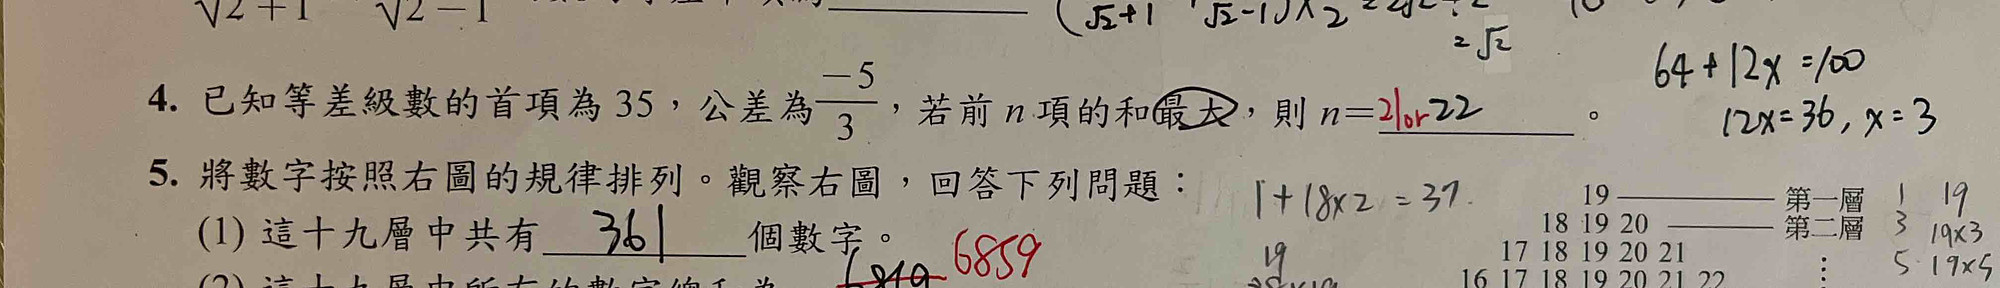 √2+1 √2−1
(√2+1 √2-1)×2
=√2
64+12x=100
12x=36, x=3
4. 已知等差級數的首項為 35，公差為 −5/3，若前 n 項的和最大，則 n=21or22。
5. 將數字按照右圖的規律排列。觀察右圖，回答下列問題：
1+18×2=37.
19 第一層 1 19
18 19 20 第二層 3 19×3
17 18 19 20 21 ⋮ 5 19×5
16 17 18 19 20 21 22
(1) 這十九層中共有 361 個數字。
19
6859
(2) 這十九層中所有的數字總和為